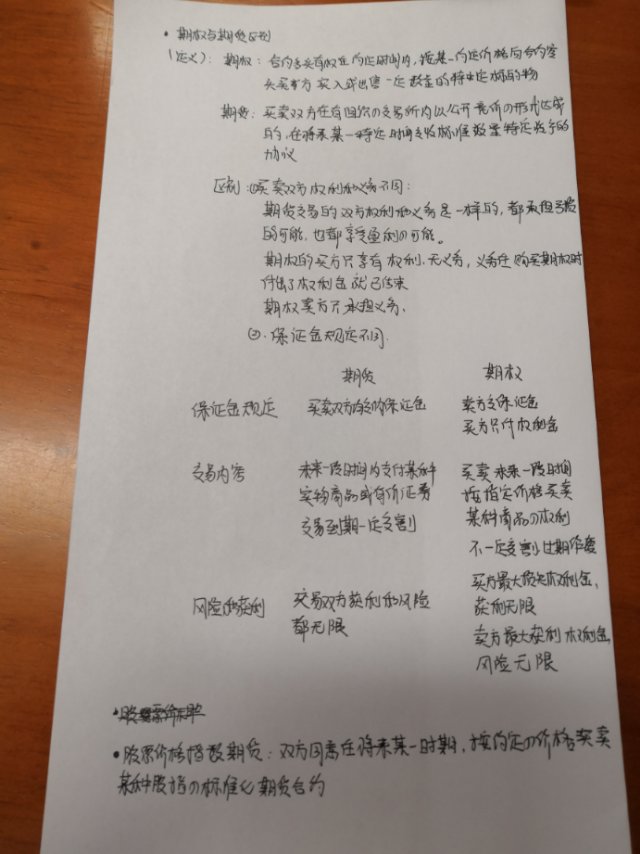 • 期权与期货区别
(定义): 期权: 合约多头有权在约定时间内, 按某一约定价格向合约空
头买卖方 买入或出售一定数量的特定标的物
期货: 买卖双方在有组织の交易所内以公开竞价の形式达成
的, 在将来某一特定时间交收标准数量特定货子的
协议
区别: ①买卖双方权利和义务不同:
期货交易的双方权利和义务是一样的, 都承担亏损
的可能, 也都享受盈利の可能。
期权的买方只享有权利, 无义务, 义务在购买期权时
付出了权利金就已结束
期权卖方只承担义务.
②. 保证金规定不同.
期货 期权
保证金规定 买卖双方均交纳保证金 卖方交保证金
买方只付权利金
交易内容 未来一段时间内支付某种 买卖未来一段时间
实物商品或有价证券 按指定价格买卖
交易到期一定交割 某种商品の权利
不一定交割过期作废
风险和获利 交易双方获利和风险 买方最大损失权利金,
都无限 获利无限
卖方最大获利权利金,
风险无限
• 股票价格指数期货: 双方同意在将来某一时期, 按约定の价格买卖
某种股指の标准化期货合约